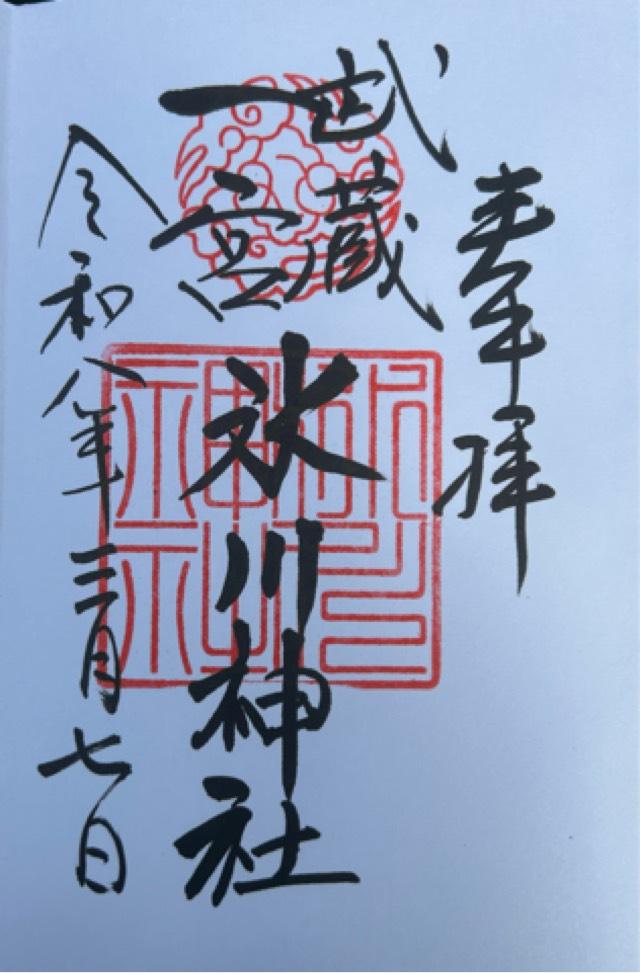 奉拝
武蔵
一宮
氷川神社
令和八年三月七日
氷川神社